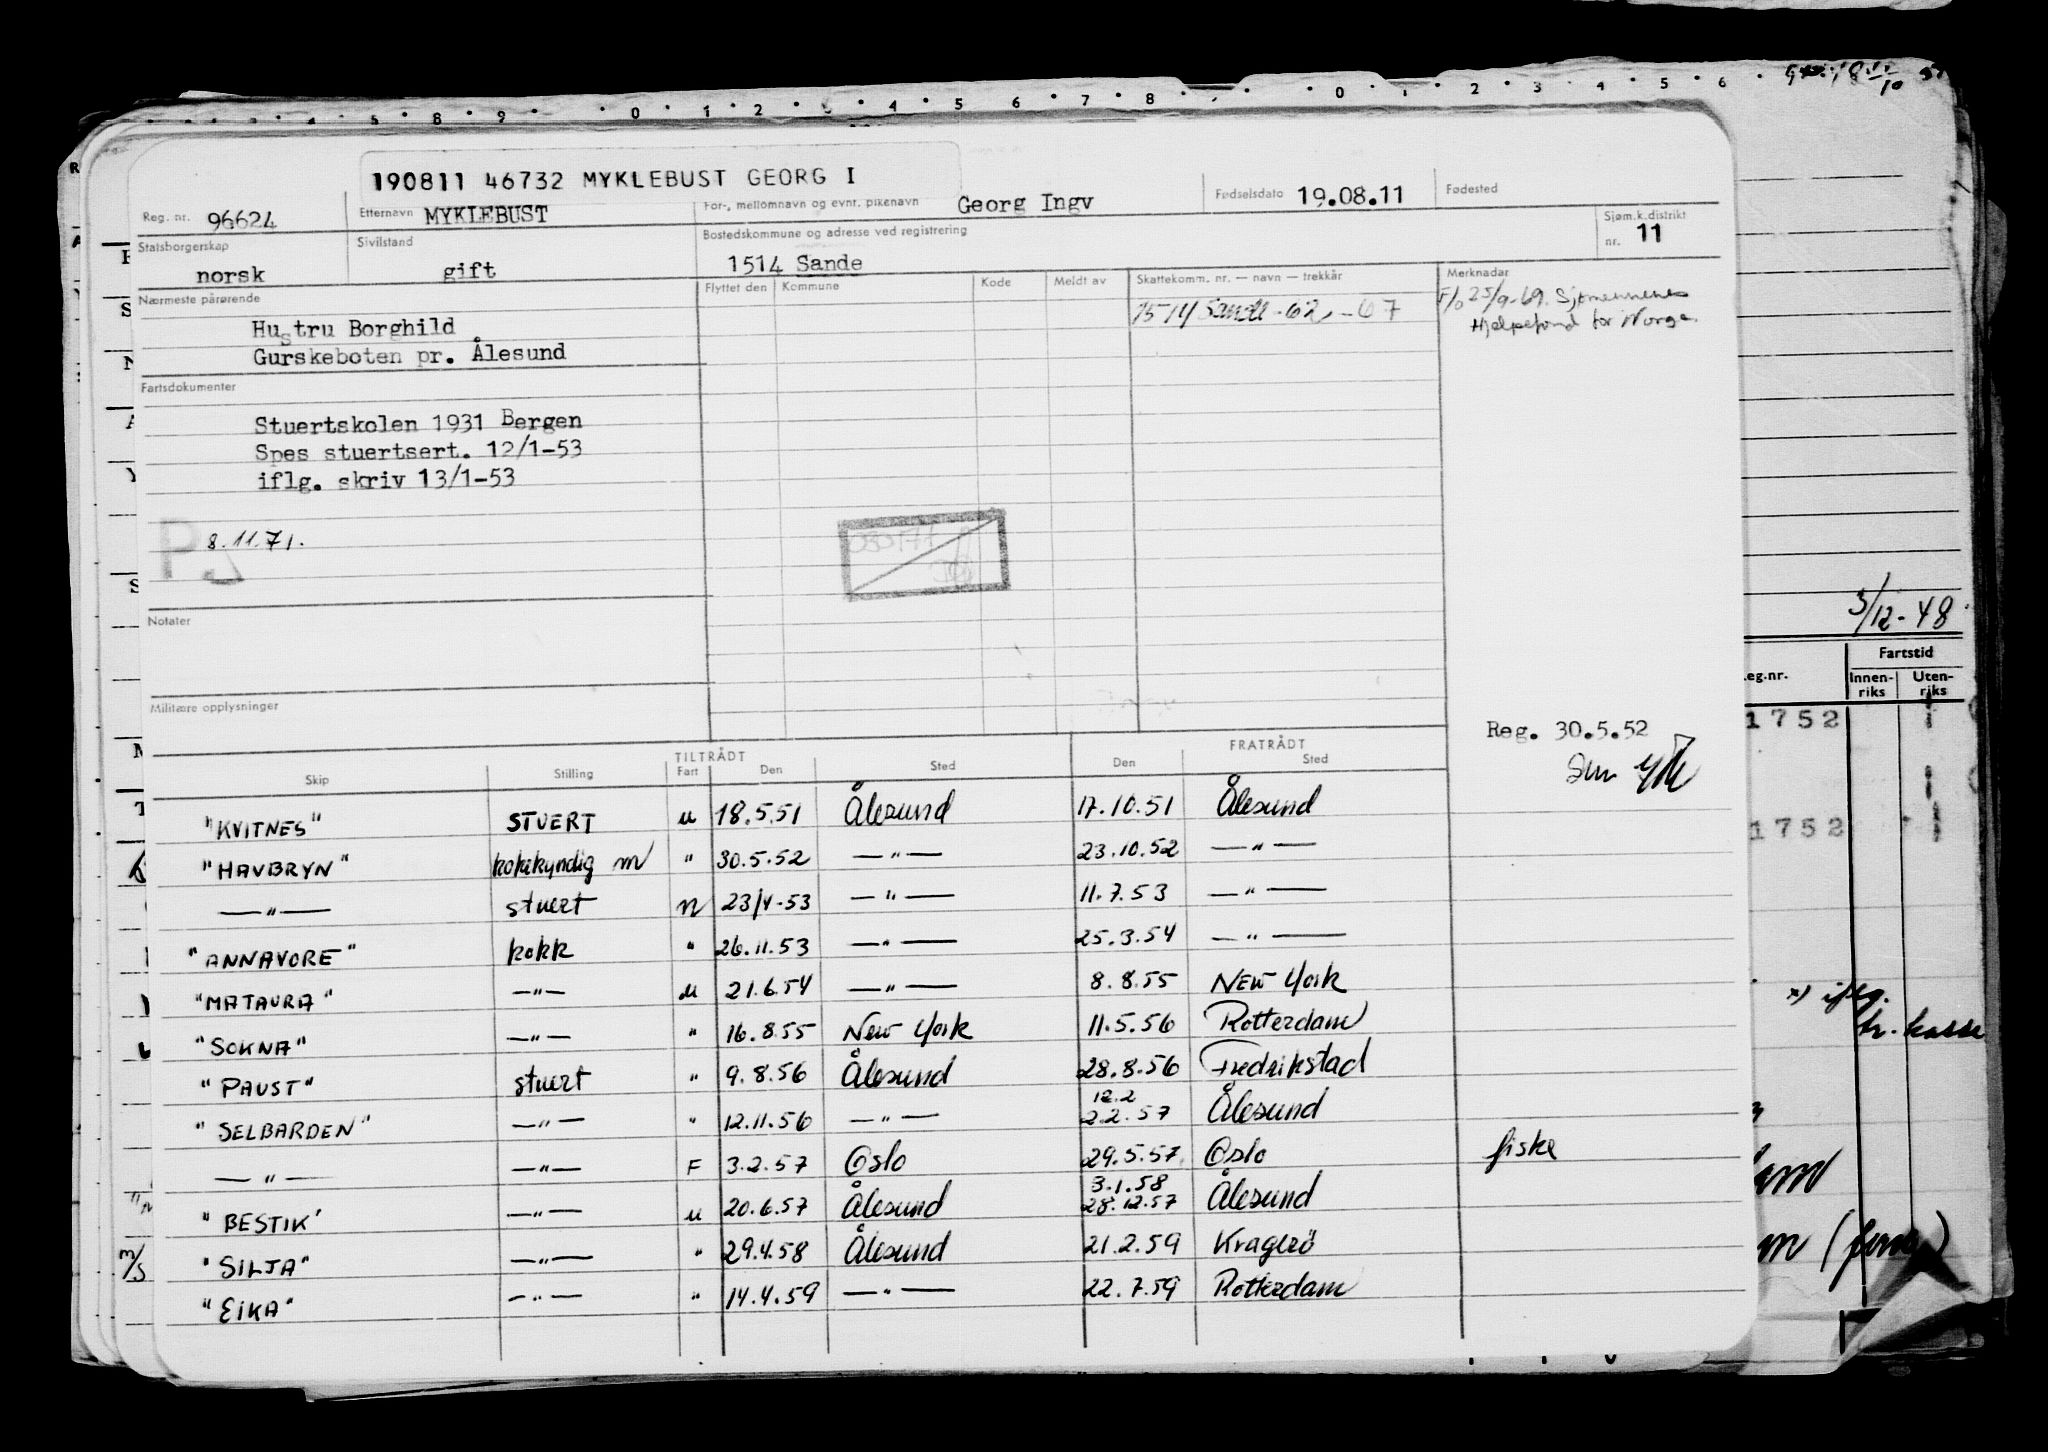 190811 46732 MYKLEBUST GEORG I
Reg. nr. 96624 Etternavn MYKLEBUST For-, mellomnavn og evnt. pikenavn Georg Ingv Fødselsdato 19.08.11 Fødested
Statsborgerskap norsk Sivilstand gift Bostedskommune og adresse ved registrering 1514 Sande Sjøm.k.distrikt nr. 11
Nærmeste pårørende Flyttet den Kommune Kode Meldt av Skattekomm. nr. — navn — trekkår Merknadar
1514 Sande -62 -67
25/9-69. Sjømennenes
Hjelpefond for Norge
Hustru Borghild
Gurskeboten pr. Ålesund
Fartsdokumenter
Stuertskolen 1931 Bergen
Spes stuertsert. 12/1-53
iflg. skriv 13/1-53
8.11.71.
Notater
Militære opplysninger
Reg. 30.5.52
TILTRÅDT FRATRÅDT
Skip Stilling Fart Den Sted Den Sted
"KVITNES" STUERT u 18.5.51 Ålesund 17.10.51 Ålesund
"HAVBRYN" kokekyndig m " 30.5.52 —"— 23.10.52 —"—
—"— stuert n 23/4-53 —"— 11.7.53 —"—
"ANNAVORE" kokk " 26.11.53 —"— 25.3.54 —"—
"MATAURA" —"— u 21.6.54 —"— 8.8.55 New York
"SOKNA" —"— " 16.8.55 New York 11.5.56 Rotterdam
"PAUST" stuert " 9.8.56 Ålesund 28.8.56 Fredrikstad
12.2
"SELBARDEN" —"— " 12.11.56 —"— 2.2.57 Ålesund
—"— —"— F 3.2.57 Oslo 29.5.57 Oslo fiske
3.1.58
"BESTIK' —"— u 20.6.57 Ålesund 28.12.57 Ålesund
"SILJA" —"— " 29.4.58 Ålesund 21.2.59 Kragerö
"EIKA" —"— " 14.4.59 —"— 22.7.59 Rotterdam
5/12-48
Fartstid
eg.nr. Innen-riks Uten-riks
1752
1752
x) iflg.
tr. kasse